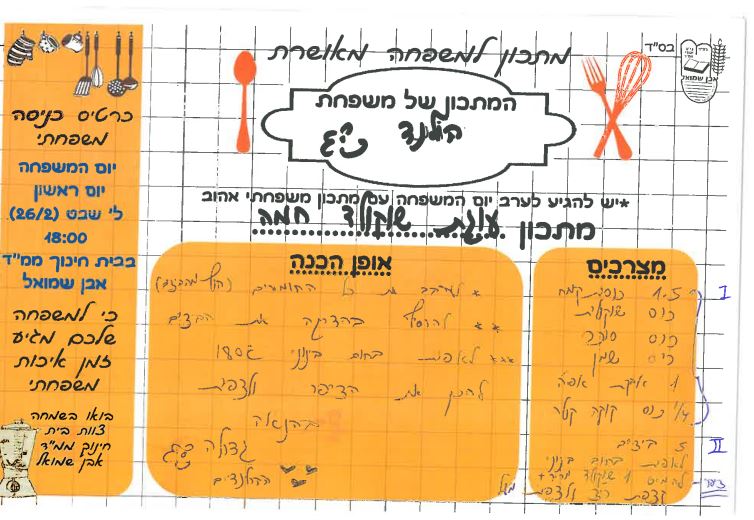 בס"ד
אבן שמואל
מתכון למשפחה מאושרת
המתכון של משפחת
הולנד
*יש להגיע לערב יום המשפחה עם מתכון משפחתי אהוב
מתכון עוגת שוקולד חמה
מצרכים
1.5 כוסות קמח
כוס שוקולית
כוס סוכר
כוס שמן
1 אבקת אפיה
1/4 כוס
I
3 ביצים
II
לאפות בחום בינוני
להמיס 1 שוקולד מריר +
שמנת ולצפות מעל
אופן הכנה
* לערבב את כל החומרים (חוץ מהביצים)
** להוסיף בהדרגה את הביצים
*** לאפות בחום בינוני 180
להכין את הציפוי ולצפות
בהנאה
גדולה
ההולנדים
כרטיס כניסה
משפחתי
יום המשפחה
יום ראשון
ל' שבט (26/2)
18:00
בבית חינוך ממ"ד
אבן שמואל
כי למשפחה
שלכם מגיע
זמן איכות
משפחתי
בואו בשמחה
צוות בית
חינוך ממ"ד
אבן שמואל